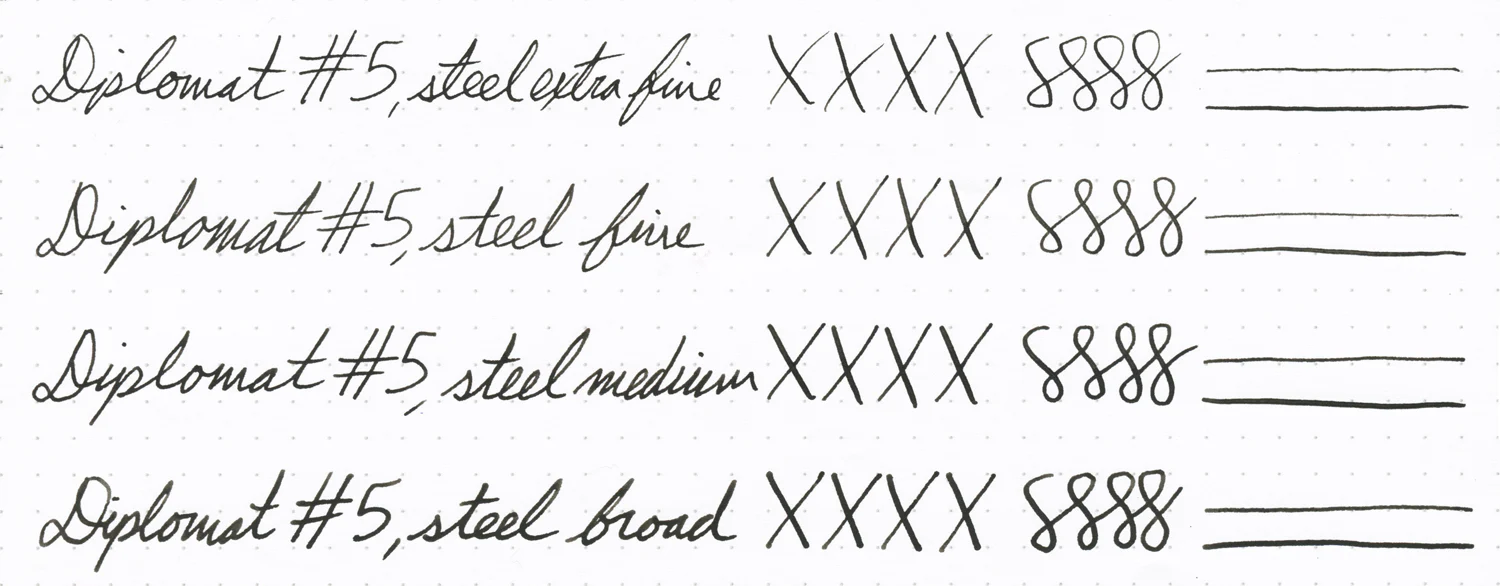 Diplomat #5, steel extra fine XXXX 8888
Diplomat #5, steel fine XXXX 8888
Diplomat #5, steel medium XXXX 8888
Diplomat #5, steel broad XXXX 8888